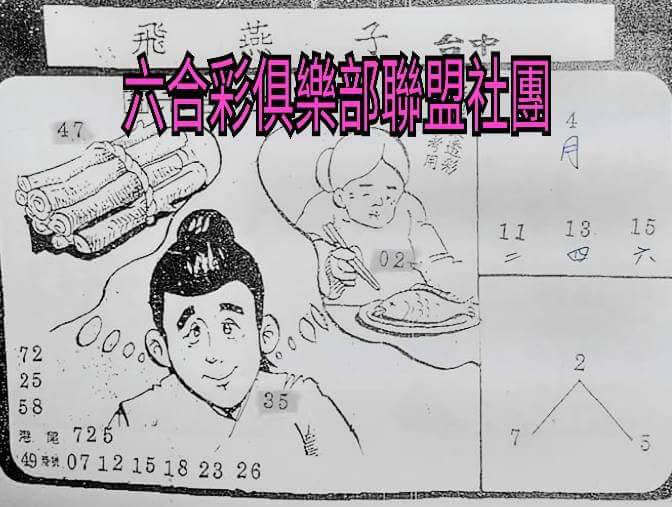 飛燕子 台中
六合彩俱樂部聯盟社團
47
透彩
考用
02
35
4
月
11 13 15
二 四 六
72
25
58
港尾 725
49 07 12 15 18 23 26
2
7 5